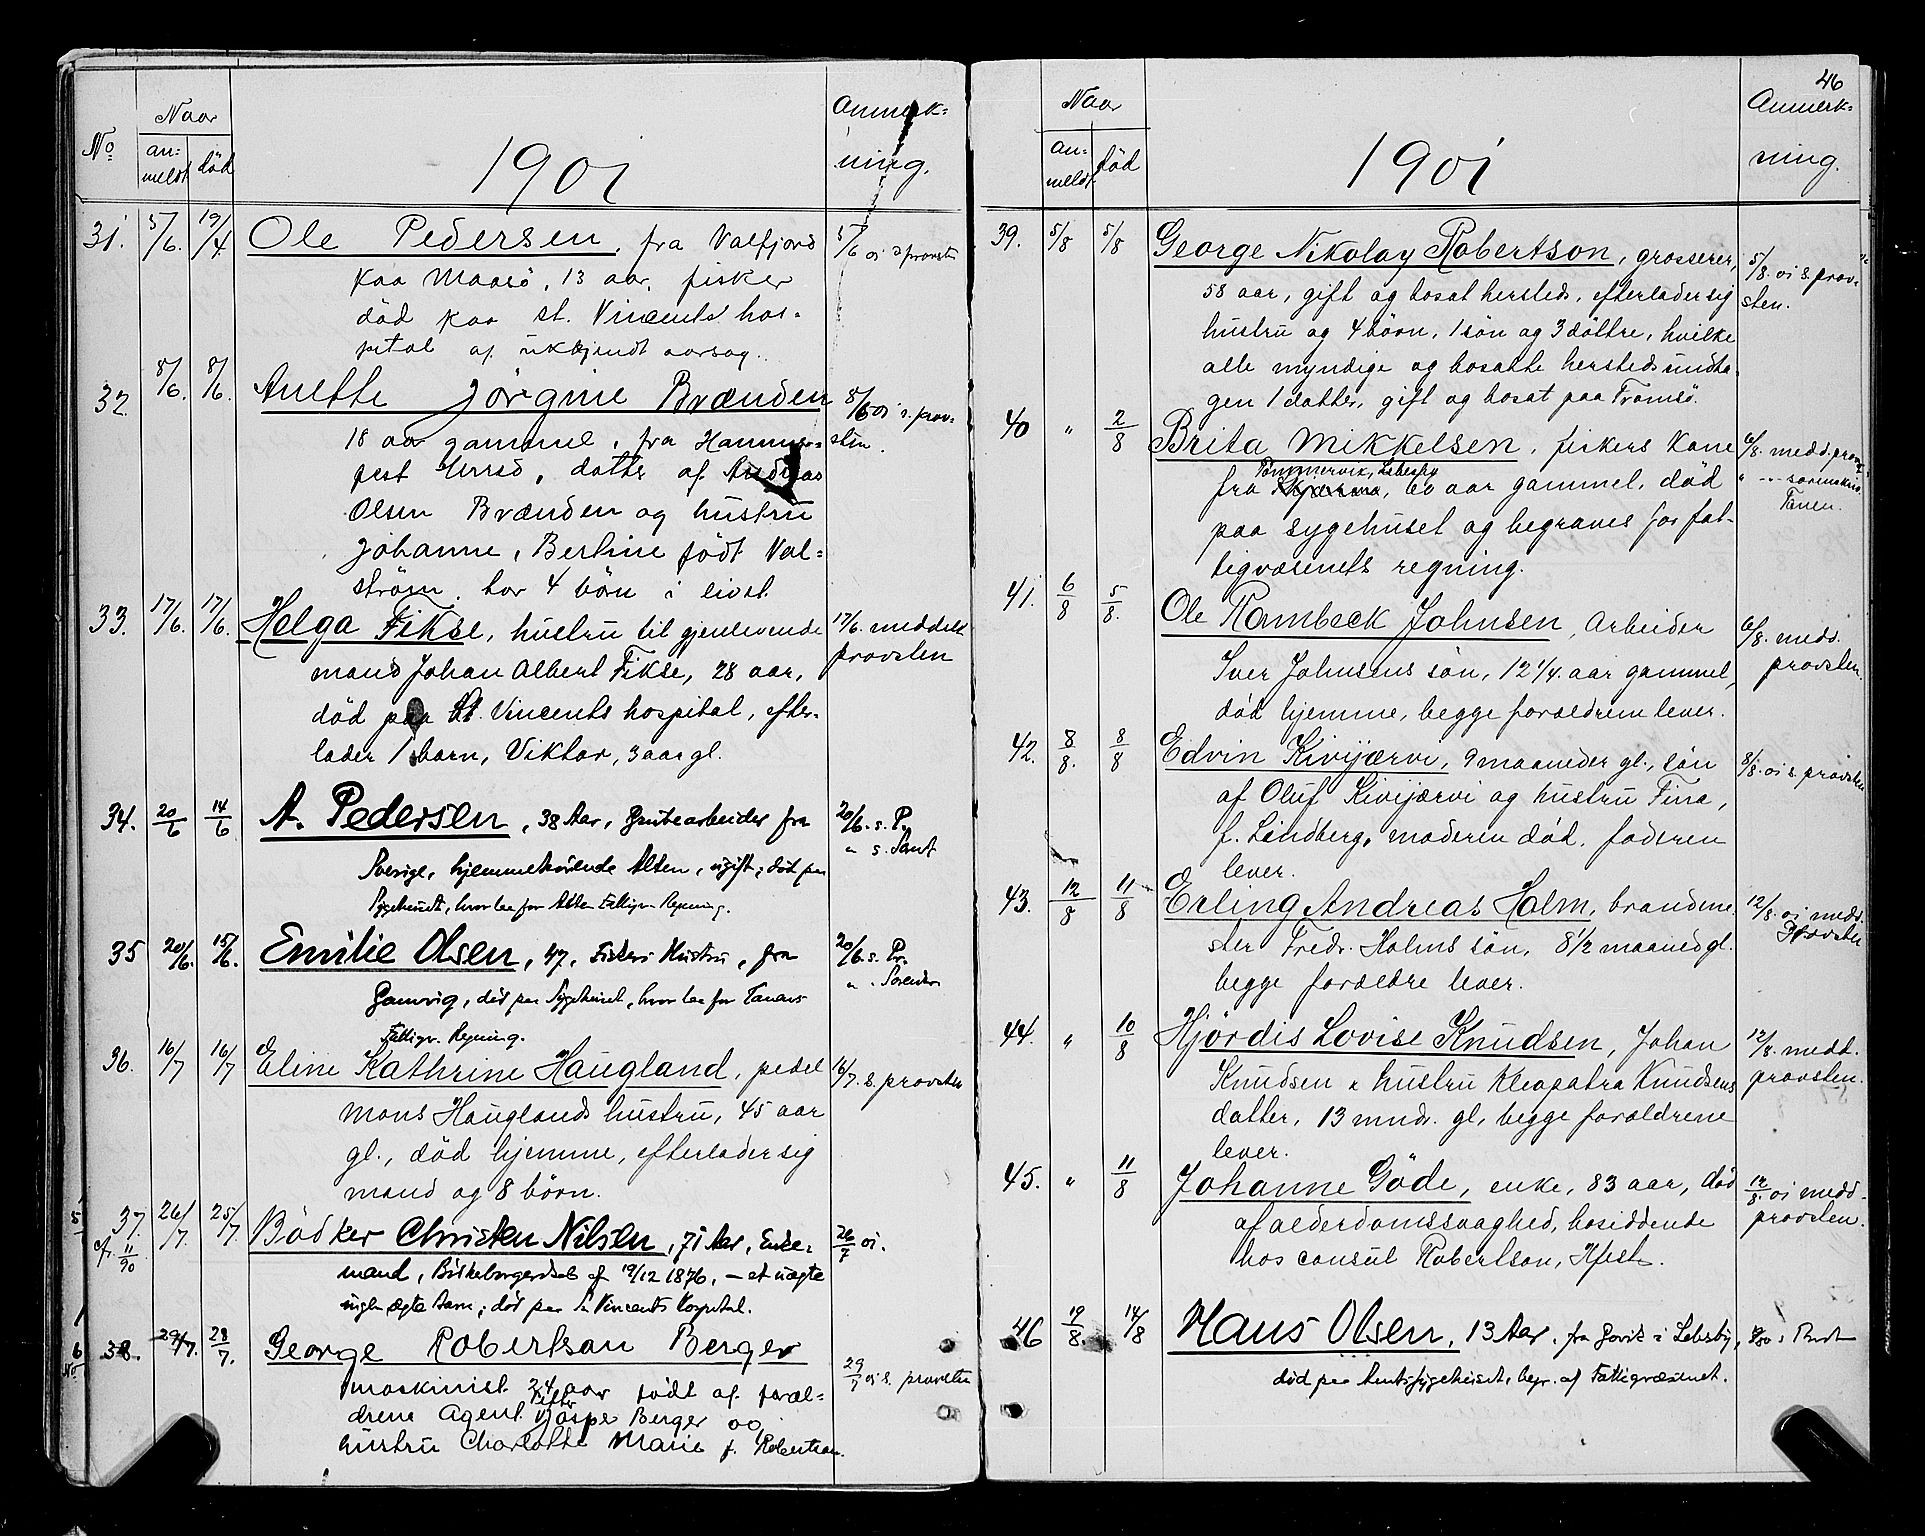 No
Naar
an-
meldt
död
1901
Anmerk-
ning.
31.
5/6.
19/4.
Ole Pedersen, fra Valfjord
5/6 oi s provsten
paa Maasö, 13 aar, fisker
död paa St. Vincents hos-
pital af ukjendt aarsag.
32.
8/6.
8/6.
Anette Jörgine Brænden
8/6 oi s. prov-
sten.
18 aar gammel, fra Hammer-
fest, datter af Andreas
Olsen Brænden og hustru
Johanne, Bertine född Val-
ström, har 4 börn i livet
33.
17/6.
17/6.
Helga Fikse, hustru til gjenlevende
17/6. meddelt
provsten
mand Johan Albert Fikse, 28 aar,
död paa St. Vincents hospital, efter-
lader 1 barn, Viktor, 3 aar gl.
34.
20/6
14/6
A. Pedersen, 38 Aar, Grubearbeider fra
20/6. s. P.
" s.
Sverige, hjemmehörende Alten, ugift; död paa
Sygehuset, hvor laa for Alten Fattigv. Regning.
35
20/6.
15/6.
Emilie Olsen, 47, Fiskers Hustru, fra
20/6. s. Pr.
Gamvig, död paa Sygehuset, hvor laa for Tanens
Fattigv. Regning.
36.
16/7
16/7
Eline Kathrine Haugland, pedel
16/7. s. provsten
mons Hauglands hustru, 45 aar
gl., död hjemme, efterlader sig
mand og 8 börn.
5
37.
cfr. 11/90
26/7.
25/7.
Bödker Christen Nilsen, 71 Aar, Enke-
26/7 oi.
mand, Borgerskab af 19/12 1876, – et uægte
ingen ægte Barn; död paa St Vincents Hospital.
6
38.
29/7.
28/7.
George Robertson Berger
29/7 oi s. provsten
maskinist 24 aar född af foræl-
drene Agent Jesper Berger og
hustru Charlotte Marie f. Robertson.
46
Naar
an-
meldt.
död
1901
Anmerk-
ning.
39.
5/8
5/8
George Nikolay Robertson, grosserer,
5/8. oi s. prov-
sten.
58 aar, gift og bosat hersteds, efterlader sig
hustru og 4 börn, 1 sön og 3 döttre, hvilke
alle myndige og bosatte hersteds undta-
gen 1 datter, gift og bosat paa Tromsö.
40
"
2/8
Brita Mikkelsen, fiskers kone
6/8. medd. provst
" — sorenskriv.
Tanen.
Pommervik, Lebesby
fra, 60 aar gammel, död
paa sygehuset og begraves for fat-
tigvæsenets regning.
41.
6/8
5/8.
Ole Rambeck Johnsen, Arbeider
6/8. medd.
provsten.
Iver Johnsens sön, 12 1/4. aar gammel,
död hjemme, begge forældrene lever.
42.
8/8.
8/8
Edvin Kivijærvi, 9 maaneder gl., sön
8/8. oi s. provsten
af Oluf Kivijærvi og hustru Fina,
f. Lindberg, moderen död, faderen
lever.
43.
12/8
11/8
Erling Andreas Holm, brandme-
12/8. oi medd.
Provsten
ster Fredr. Holms sön, 8 1/2 maaned gl.
begge forældre lever.
44.
"
10/8
Hjördis Lovise Knudsen, Johan
12/8. medd.
provsten.
Knudsen & hustru Kleopatra Knudsens
datter, 13 mnd. gl, begge forældrene
lever.
45.
"
11/8
Johanne Göde, enke, 83 aar, död
12/8. oi medd.
provsten.
af alderdomssvaghed, hosiddende
hos consul Robertson, Hfest.
46
19/8.
14/8
Hans Olsen, 13 Aar, fra i Lebesby,
död paa Amtssygehuset, begr. af Fattigvæsenet.